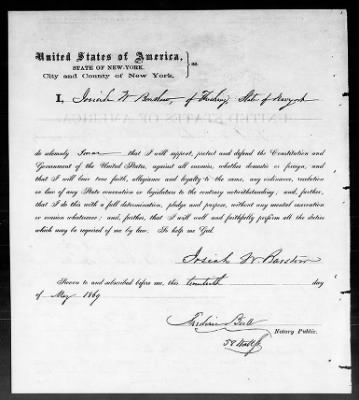 United States of America, } ss.
STATE OF NEW-YORK.
City and County of New York,
I, Josiah W Barstow, of Flushing, State of New york
do solemnly Swear that I will support, protect and defend the Constitution and
Government of the United States, against all enemies, whether domestic or foreign, and
that I will bear true faith, allegiance and loyalty to the same, any ordinance, resolution
or law of any State convention or legislature to the contrary notwithstanding; and, further,
that I do this with a full determination, pledge and purpose, without any mental reservation
or evasion whatsoever; and, further, that I will well and faithfully perform all the duties
which may be required of me by law. So help me God.
Josiah W Barstow
Sworn to and subscribed before me, this twentieth day
of May 1869
Bull
Notary Public.
58 Wall St